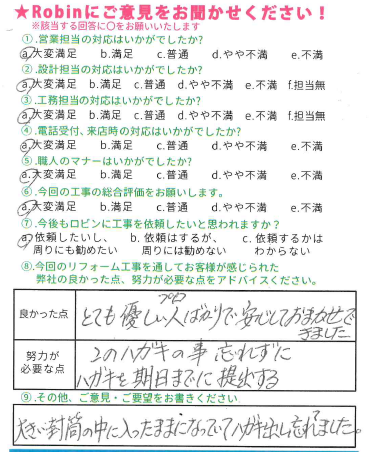 ★Robinにご意見をお聞かせください！
※該当する回答に〇をお願いいたします
①.営業担当の対応はいかがでしたか?
a.大変満足 b.満足 c.普通 d.やや不満 e.不満
②.設計担当の対応はいかがでしたか?
a.大変満足 b.満足 c.普通 d.やや不満 e.不満 f.担当無
③.工務担当の対応はいかがでしたか?
a.大変満足 b.満足 c.普通 d.やや不満 e.不満 f.担当無
④.電話受付、来店時の対応はいかがでしたか?
a.大変満足 b.満足 c.普通 d.やや不満 e.不満
⑤.職人のマナーはいかがでしたか?
a.大変満足 b.満足 c.普通 d.やや不満 e.不満
⑥.今回の工事の総合評価をお願いします。
a.大変満足 b.満足 c.普通 d.やや不満 e.不満
⑦.今後もロビンに工事を依頼したいと思われますか？
a.依頼したいし、 b. 依頼はするが、 c. 依頼するかは
周りにも勧めたい 周りには勧めない わからない
⑧.今回のリフォーム工事を通してお客様が感じられた
弊社の良かった点、努力が必要な点をアドバイスください。
良かった点
プロ
とても優しい人ばかりで安心しておまかせで
きました
努力が
必要な点
このハガキの事 忘れずに
ハガキを期日までに提出する
⑨.その他、ご意見・ご要望をお書きください
大きい封筒の中に入ったままになっていてハガキ出し忘れてました。